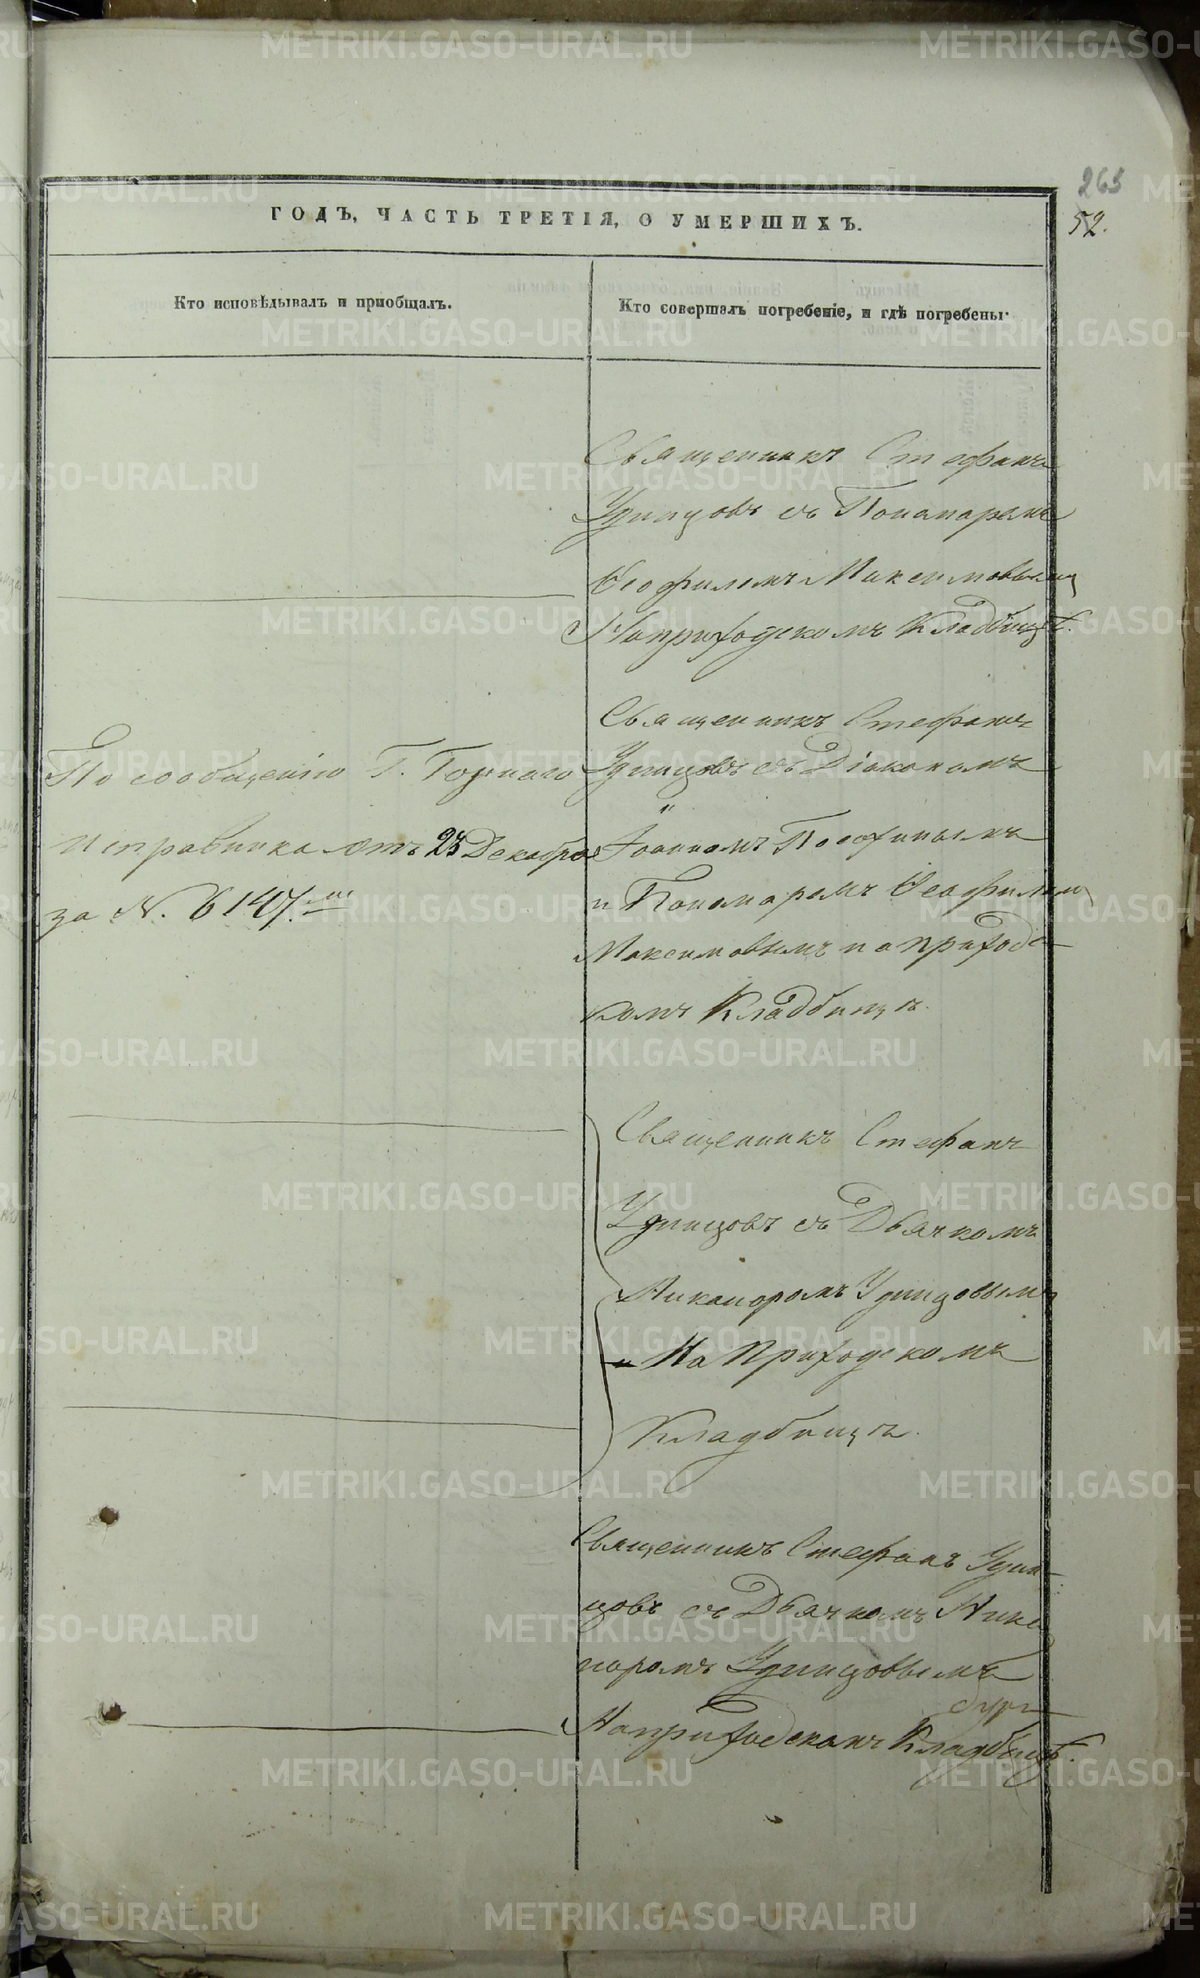 265
52.
ГОДЪ, ЧАСТЬ ТРЕТІЯ, О УМЕРШИХЪ.
Кто исповѣдывалъ и пріобщалъ.
Кто совершалъ погребеніе, и гдѣ погребены.
Священникъ Стефанъ
Удинцовъ съ Пономаремъ
Ѳеофиломъ Максимовымъ
На приходскомъ Кладбищѣ.
По сообщенію Г. Горнаго
Исправника отъ 23 Декабря
за N. 6147.мъ
Священникъ Стефанъ
Удинцовъ съ Діакономъ
Іоанномъ
и Пономаремъ Ѳеофиломъ
Максимовымъ на приходс
комъ Кладбищѣ.
Священникъ Стефанъ
Удинцовъ съ Дьячкомъ
Никаноромъ Удинцовымъ
На Приходскомъ
Кладбищѣ.
Священникъ Стефанъ Удин-
цовъ съ Дьячкомъ Ника
норомъ Удинцовымъ
На приходскомъ Кладбищѣ.
METRIKI.GASO-URAL.RU